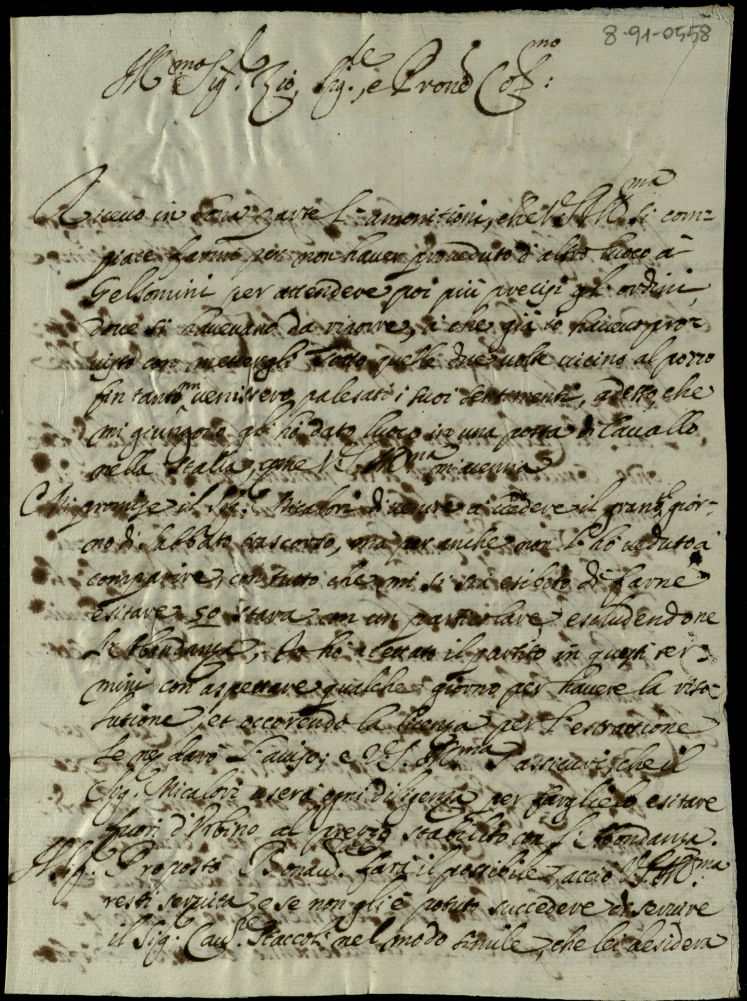 8-91-0558
Ill.mo Sig.r Zio, Sig.re, e Pron Col.mo:
Riceuo in bona parte l'amonitioni, che V.S. Ill.ma si com=
piace farmi per non hauer proueduto d'altro luoco à
Gelsomini per attendere poi più precisi gl'ordini,
doue si haueuano da riporre, è che già io haueuo pro=
uisto con metergli sotto quelle due volte uicino al pozzo
fin tanto mi venissero palesati i suoi sentimenti, adesso, che
mi giungono gl'hò dato luoco in una posta di Cauallo,
nella stalla, come V.S. Ill.ma m'acenna
Mi promise il Sig.r Micalori di uenire à uedere il grano gior=
no di Sabbato trascorso, ma per anche non l'hò ueduto à
comparire, con tutto che mi si sia esibito di farne
esitare 50 stara con un particolare, escludendone
l'Abbundanza, Io hò accettato il partito in questi ter=
mini con aspettare qualche giorno per hauere la riso=
lutione, et occorendo la licenza per l'estrazione
le ne darò l'auiso; e V.S. Ill.ma s'assicuri, che il
Sig.r Micalori userà ogni diligenza per farglielo esitare
fuori d'Urbino al prezzo stabilito con l'Abondanza.
Il Sig.r Proposto Bonau. farà il possibile, acciò V.S. Ill.ma:
resti seruita, e se non gli è potuto succedere di seruire
il Sig.r Cau.re Staccoli nel modo simile, che lei desidera